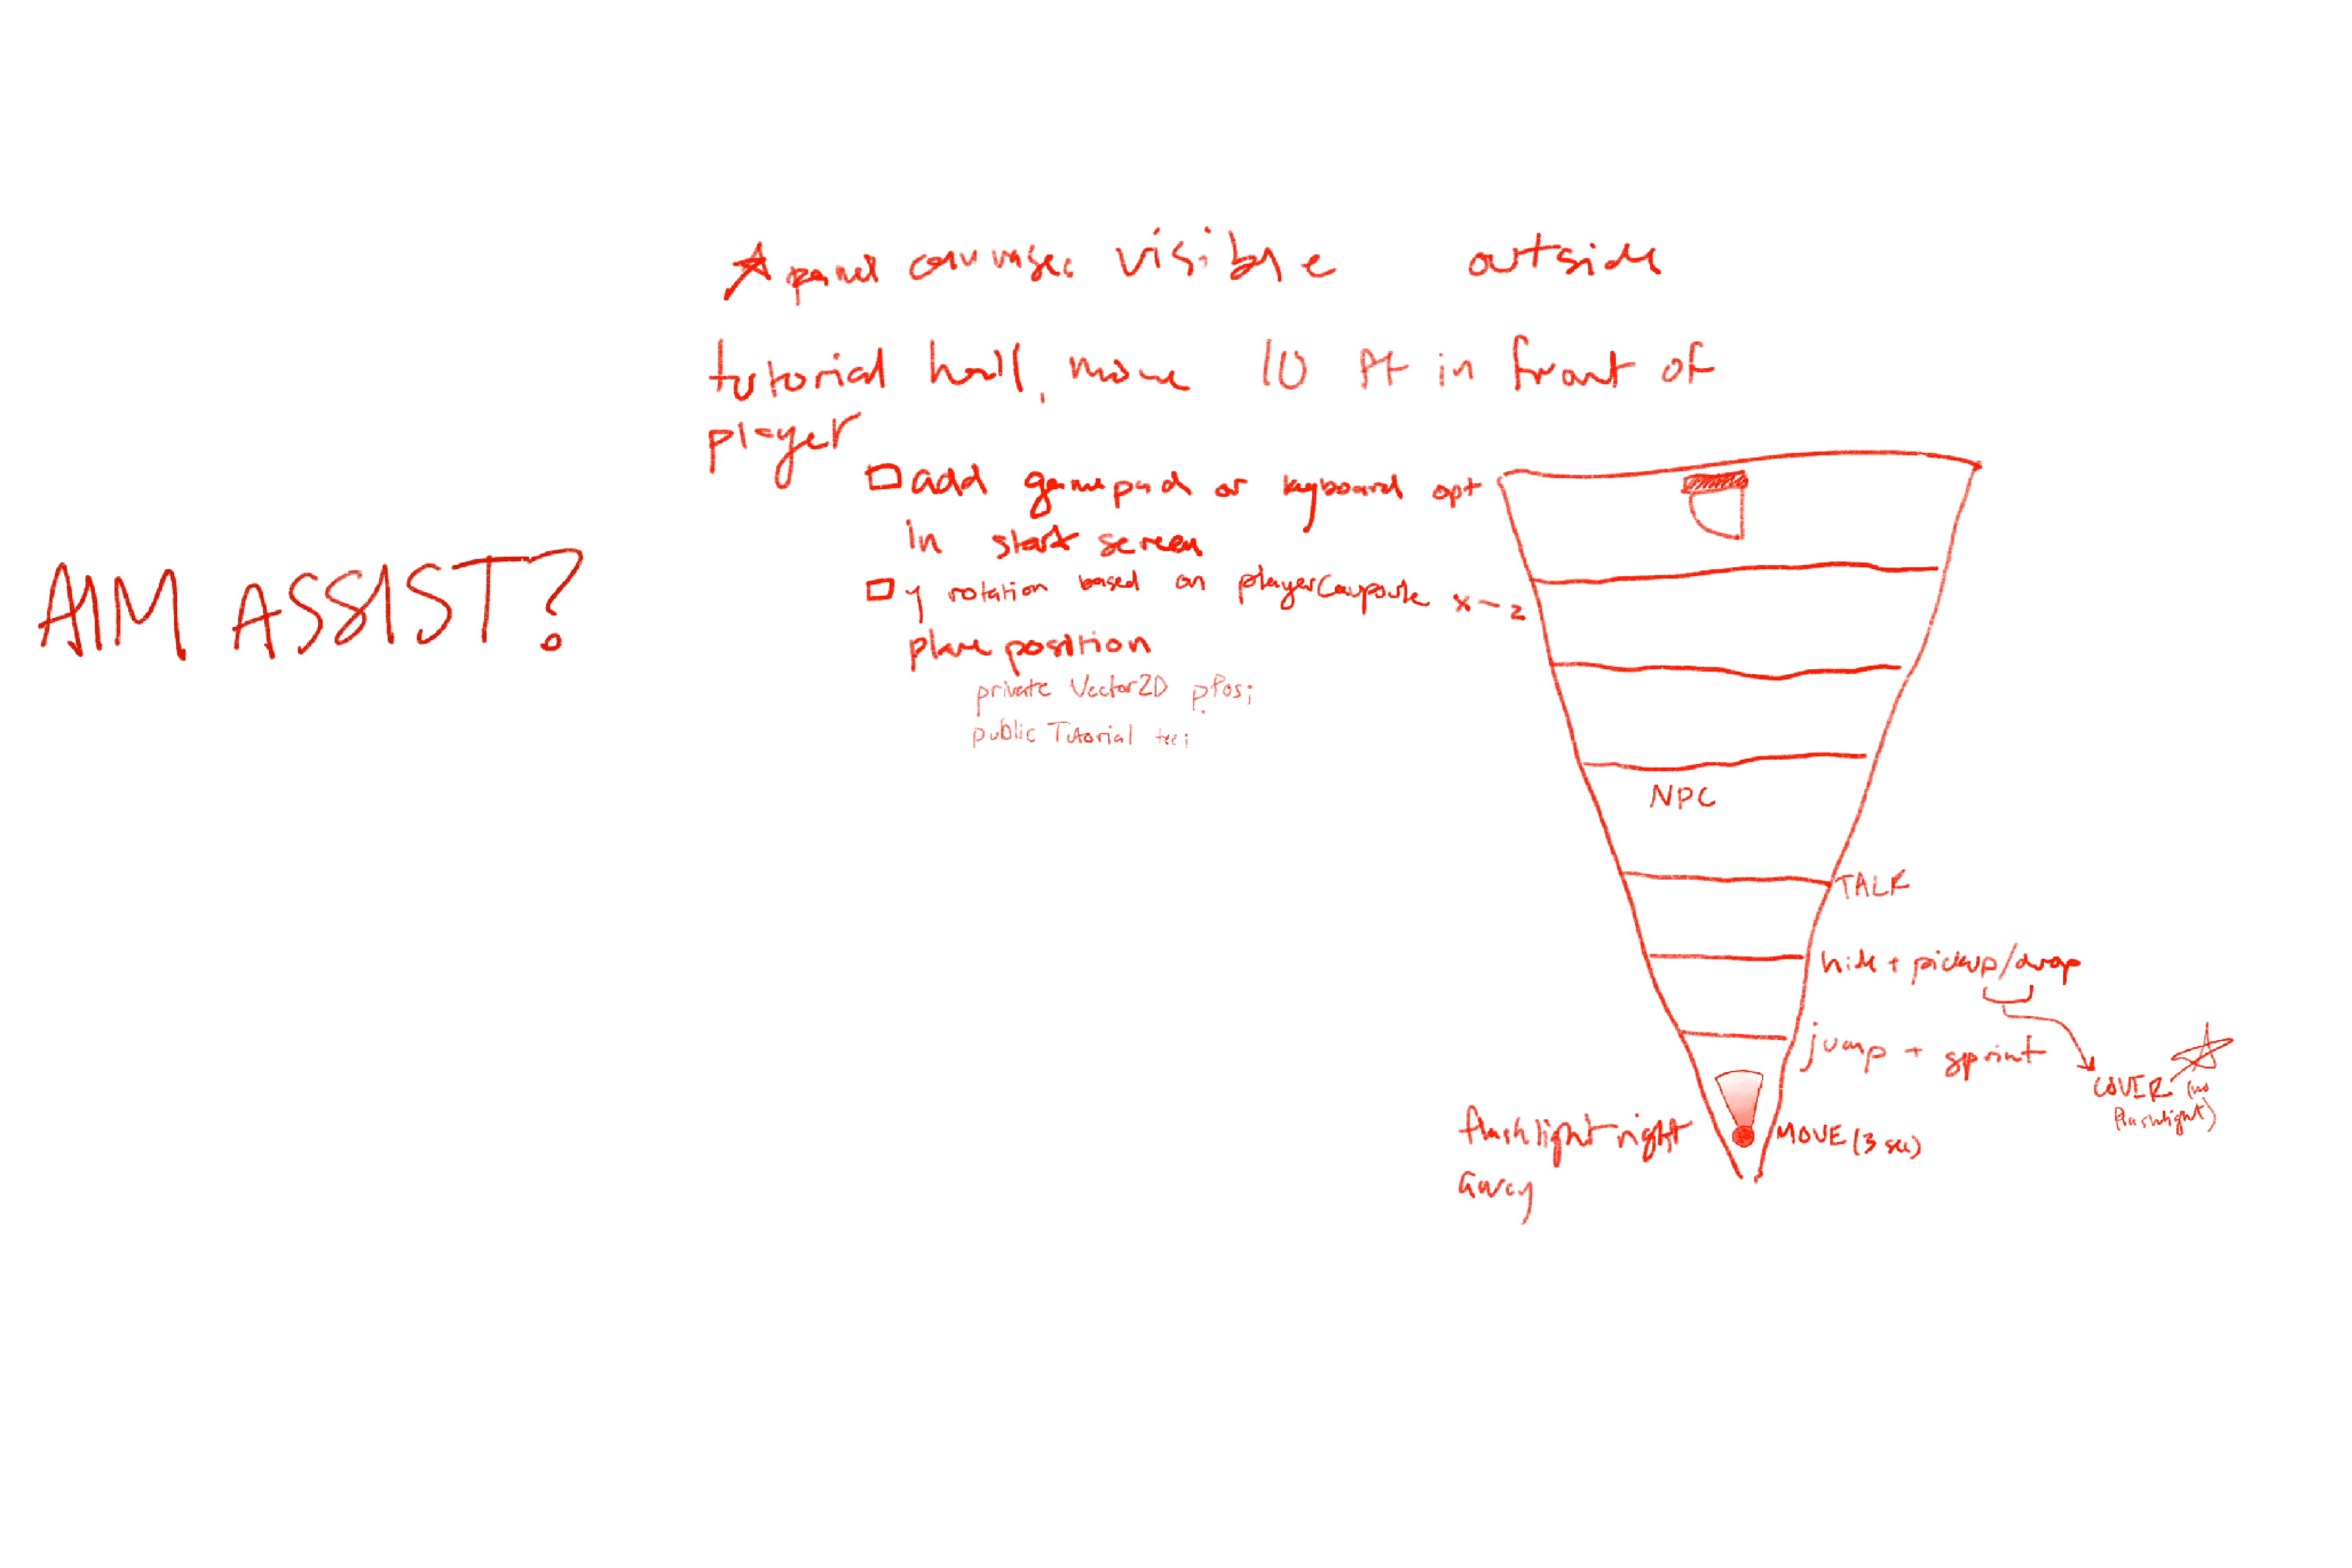 panel canvases visible outside
tutorial hall, move 10 ft in front of
player
add gamepad or keyboard opt
in start screen
y rotation based on playerCapsule x-z
plane position
private Vector2D pPos;
public Tutorial tee;
AIM ASSIST?
NPC
TALK
hide + pickup/drop
jump + sprint
COVER (no
flashlight)
flashlight right
away
MOVE (3 sec)